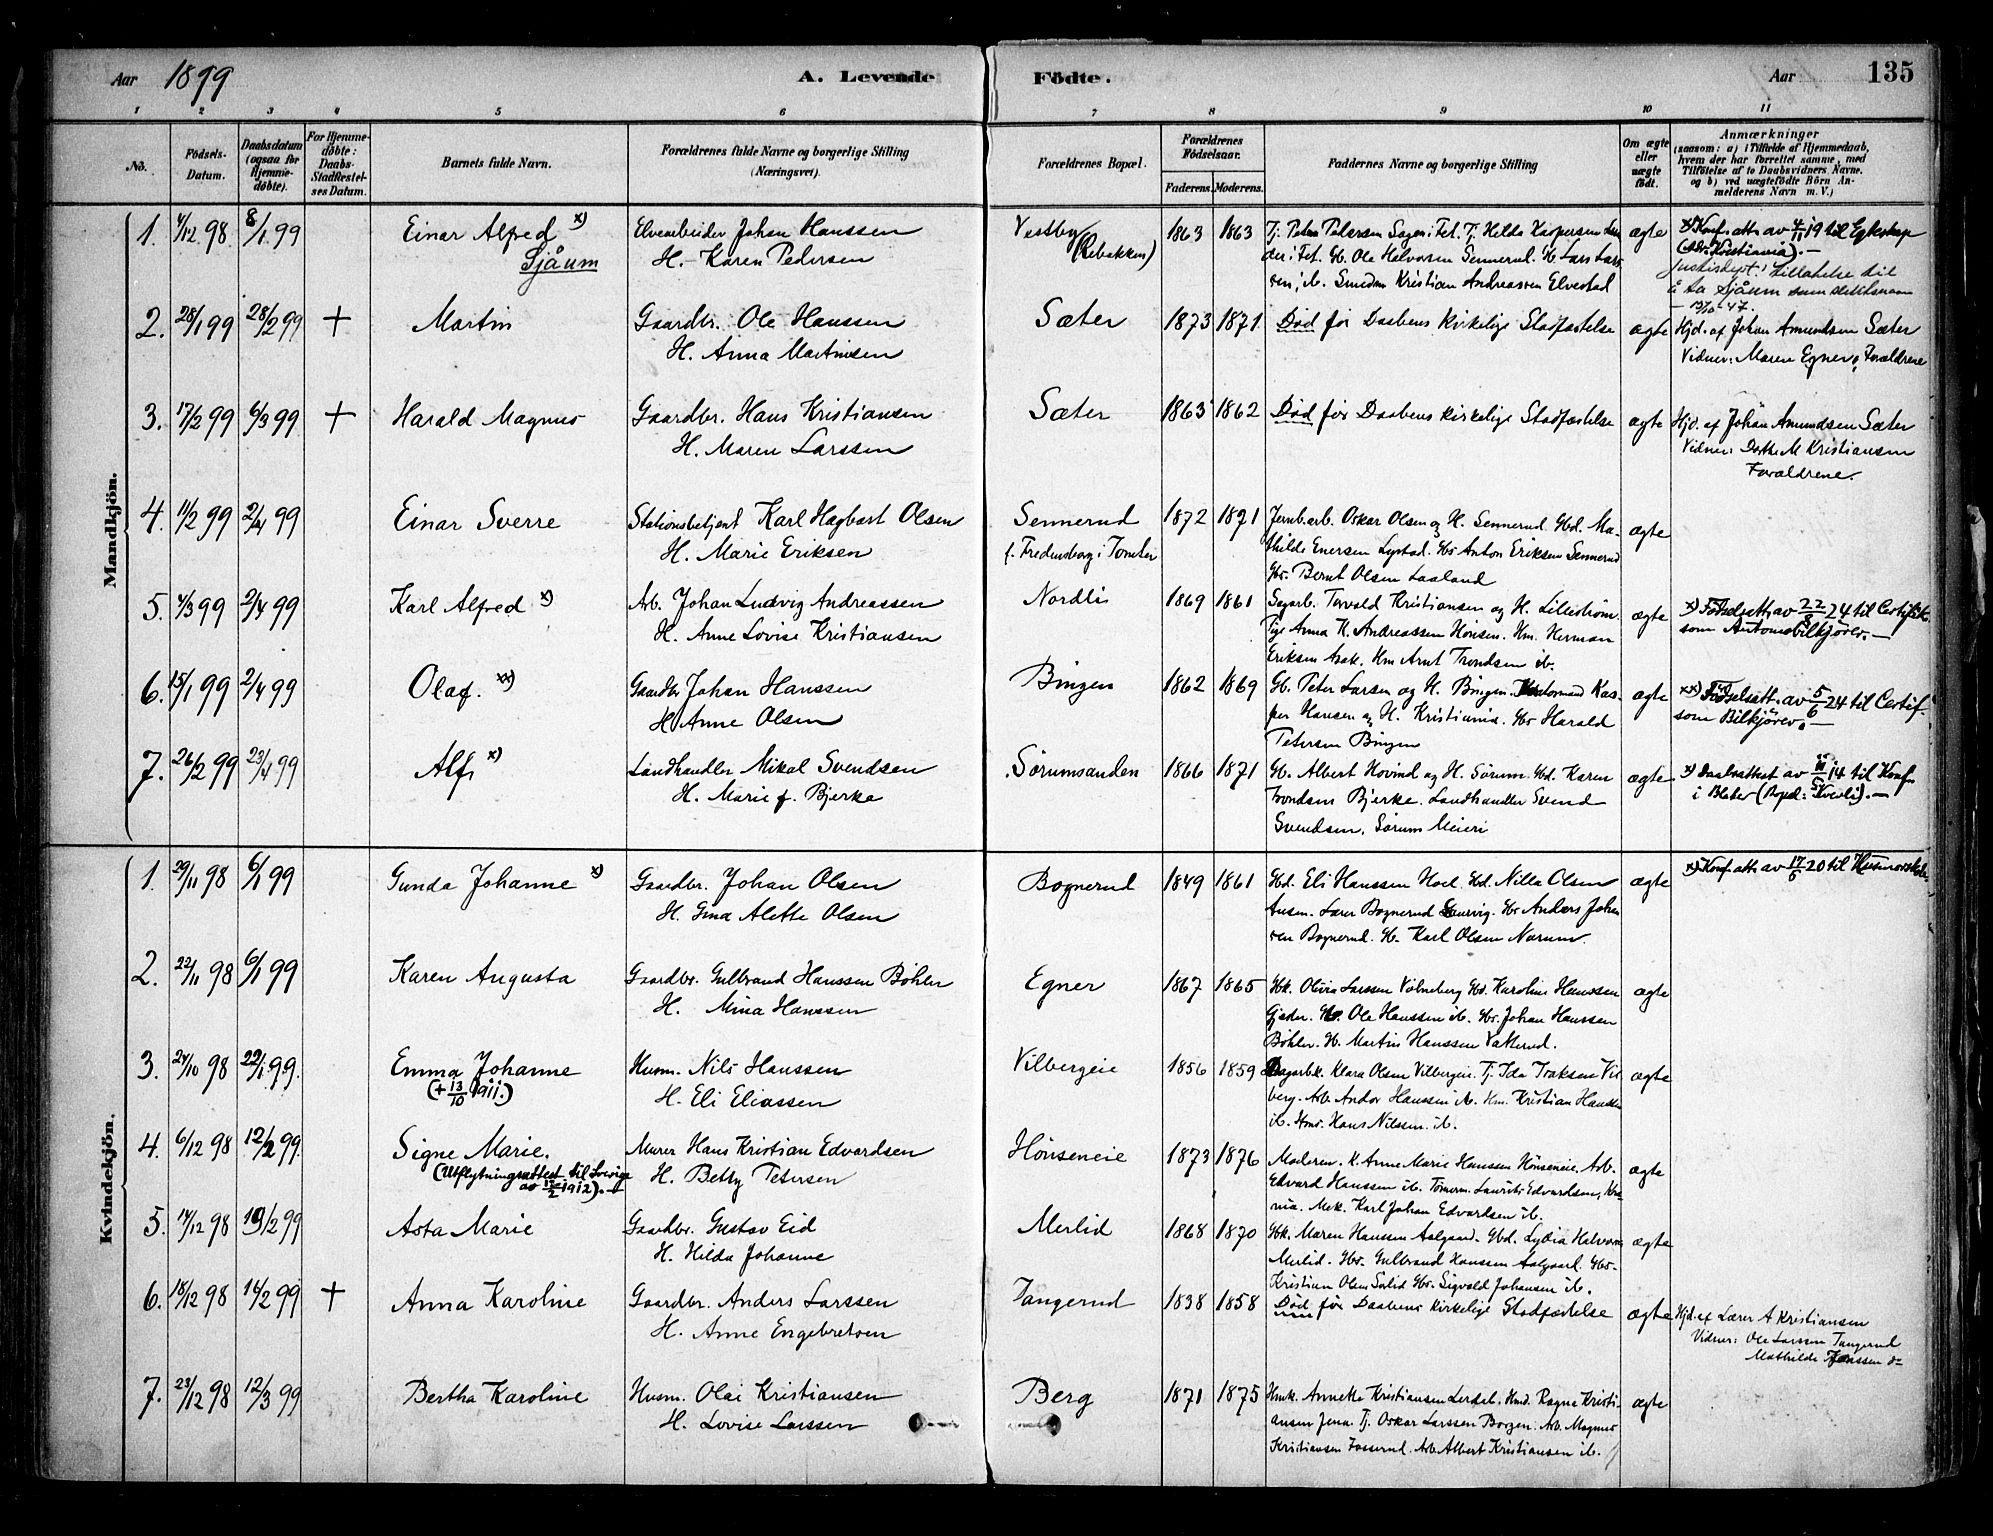 Aar 1899 A. Levende Födte. Aar 135
1 2 3 4 5 6 7 8 9 10 11
No. Födsels-Datum. Daabsdatum (ogsaa for Hjemmedöbte). For Hjemmedöbte: Daabs-Stadfæstelses Datum. Barnets fulde Navn. Forældrenes fulde Navne og borgerlige Stilling (Næringsvei). Forældrenes Bopæl. Forældrenes Födselsaar. Faderens. Moderens. Faddernes Navne og borgerlige Stilling Om ægte eller uægte födt. Anmærkninger (saasom: a) i Tilfælde af Hjemmedaab, hvem der har forrettet samme, med Tilföielse af to Daabsvidners Navne. og b) ved uægtefödte Börn Anmelderens Navn m. V.)
Mandkjön.
1. 4/12 98 8/1 99 Einar Alfred x) Elvearbeider Johan Hanssen Vestby 1863 1863 ægte
Sjåum H. Karen Pedersen (Rebakken)
x) Konf. att. av 4/11 19 til
(Adr. Kristiania). —
Justisdept.s tillatelse til
å ta Sjåum som slektsnavn
2. 28/1 99 28/2 99 + Martin Gaardbr. Ole Hanssen Sæter 1873 1871 Død før Daabens kirkelige Stadfæstelse ægte Hjd. af Johan Amundsen Sæter
H. Anna Martinsen Vidner: Maren Egner, Forældrene
3. 17/2 99 6/3 99 + Harald Magnus Gaardbr. Hans Kristiansen Sæter 1863 1862 Død før Daabens kirkelige Stadfæstelse ægte Hjd. af Johan Amundsen Sæter
H. Maren Larssen Vidner: Dorthe M Kristiansen
Forældrene.
4. 11/2 99 2/4 99 Einar Sverre Stationsbetjent Karl Hagbart Olsen Sennerud 1872 1871 Jernb.arb. Oskar Olsen og H. Sennerud. Gbd. Ma- ægte
H. Marie Eriksen f. Fredensborg i Tomter thilde Enersen Lystad. Gbs Anton Eriksen Sennerud
Gbs. Bernt Olsen Laaland
5. 4/3 99 2/4 99 Karl Alfred x) Arb. Johan Ludvig Andreassen Nordli 1869 1861 Sagarb. Torvald Kristiansen og H. Lillestrøm ægte x) Fødselsatt. av 22/8 24 til Certifik.
H. Anne Lovise Kristiansen Pige Anna K. Andreassen Hønsen. Hm. Herman som Automobilkjører. —
Eriksen Asak. Hm Arnt Trondsen ib.
6. 15/1 99 2/4 99 Olaf. xx) Gaardbr Johan Hanssen Bingen 1862 1869 Gb. Peter Larsen og H. Bingen. Kas- ægte xx) Fødselsatt. av 5/6 24 til Certif.
H. Anne Olsen per Hansen og H. Kristiania. Gbs Harald som Bilkjører. —
Petersen Bingen
7. 26/2 99 23/4 99 Alf x) Landhandler Mikal Svendsen Sørumsanden 1866 1871 Gb. Albert Hovind og H. Sørum. Gbd. Karen ægte x) Daabsattest av 14 til Konf.
H. Marie f. Bjerke Trondsen Bjerke. Landhandler Svend
Svendsen. Sørum Meieri
Kvindekjön.
1. 29/11 98 6/1 99 Gunda Johanne x) Gaardbr. Johan Olsen Bognerud 1849 1861 Gbd. Eli Hanssen Hoel. Gbd. Nilla Olsen ægte x) Konf. att. av 17/6 20 til
H. Gina Alette Olsen Lærer Bognerud Gbs Anders Johan
sen Bognerud. Gb. Karl Olsen Norum.
2. 22/11 98 6/1 99 Karen Augusta Gaardbr. Gulbrand Hanssen Bøhler Egner 1867 1865 Gbk. Olivia Larssen Volneberg Gbd. Karoline Hanssen ægte
H. Mina Hanssen Gjeder. Gb. Ole Hanssen ib. Gbs. Johan Hanssen
Bøhler. Gb. Martin Hanssen Vatterud.
3. 24/10 98 22/1 99. Emma Johanne Husm. Nils Hanssen Vilbergeie 1856 1859 Klara Olsen Vilbergeie. Tj. Ida Iraksen Vil ægte
(+ 13/10 1911.) H. Eli Eliassen berg. Arb. Andor Hanssen ib. Hm. Kristian Hanssen
ib. Hms. Hans Nilssen. ib.
4. 6/12 98 12/2 99. Signe Marie. Murer Hans Kristian Edvardsen Hønseneie 1873 1876 Moderen. K. Anne Marie Hanssen Hønseneie. Arb. ægte
(Utflytningsattest til Sverige H. Betty Petersen Edvard Hanssen ib. Tømerm. Laurits Edvardsen, Kra
av 12/2 1912). — nia. Mek. Karl Johan Edvardsen ib.
5. 14/12 98 19/2 99 Asta Marie Gaardbr. Gustav Eid Merlid 1868 1870 Gbk. Maren Hanssen Aalgaard. Gbd. Lydia Halvorsen ægte
H. Hilda Johanne Merlid. Gbs. Gulbrand Hanssen Aalgaard. Gbs.
Kristian Olsen Solid Gbs. Sigvald Johansen ib.
6. 18/12 98 14/2 99 + Anna Karoline Gaardbr. Anders Larssen Tangerud 1838 1858 Død før Daabens kirkelige Stadfæstelse ægte Hjd. af Lærer A Kristiansen
H. Anne Engebretsen Vidner: Ole Larssen Tangerud
Mathilde Janssen do
7. 23/12 98 12/3 99 Bertha Karoline Husm. Olai Kristiansen Berg 1871 1875 Hmk. Annette Kristiansen Lerdal. Hmd. Ragna Kristi- ægte
H. Lovise Larssen ansen Jena. Tj. Oskar Larssen Borgen. Arb. Magnus
Kristiansen Fosserud. Arb. Albert Kristiansen ib.